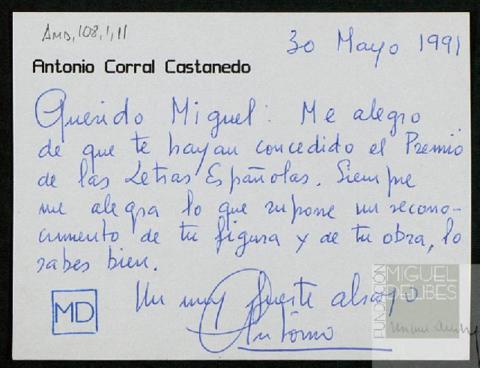 AMD, 108, 1, 11
30 Mayo 1991
Antonio Corral Castanedo
Querido Miguel: Me alegro
de que te hayan concedido el Premio
de las Letras Españolas. Siempre
me alegra lo que supone un recono-
cimiento de tu figura y de tu obra, lo
sabes bien.
Un muy fuerte abrazo
Antonio
MD
FUNDACIÓN
MIGUEL
DELIBES